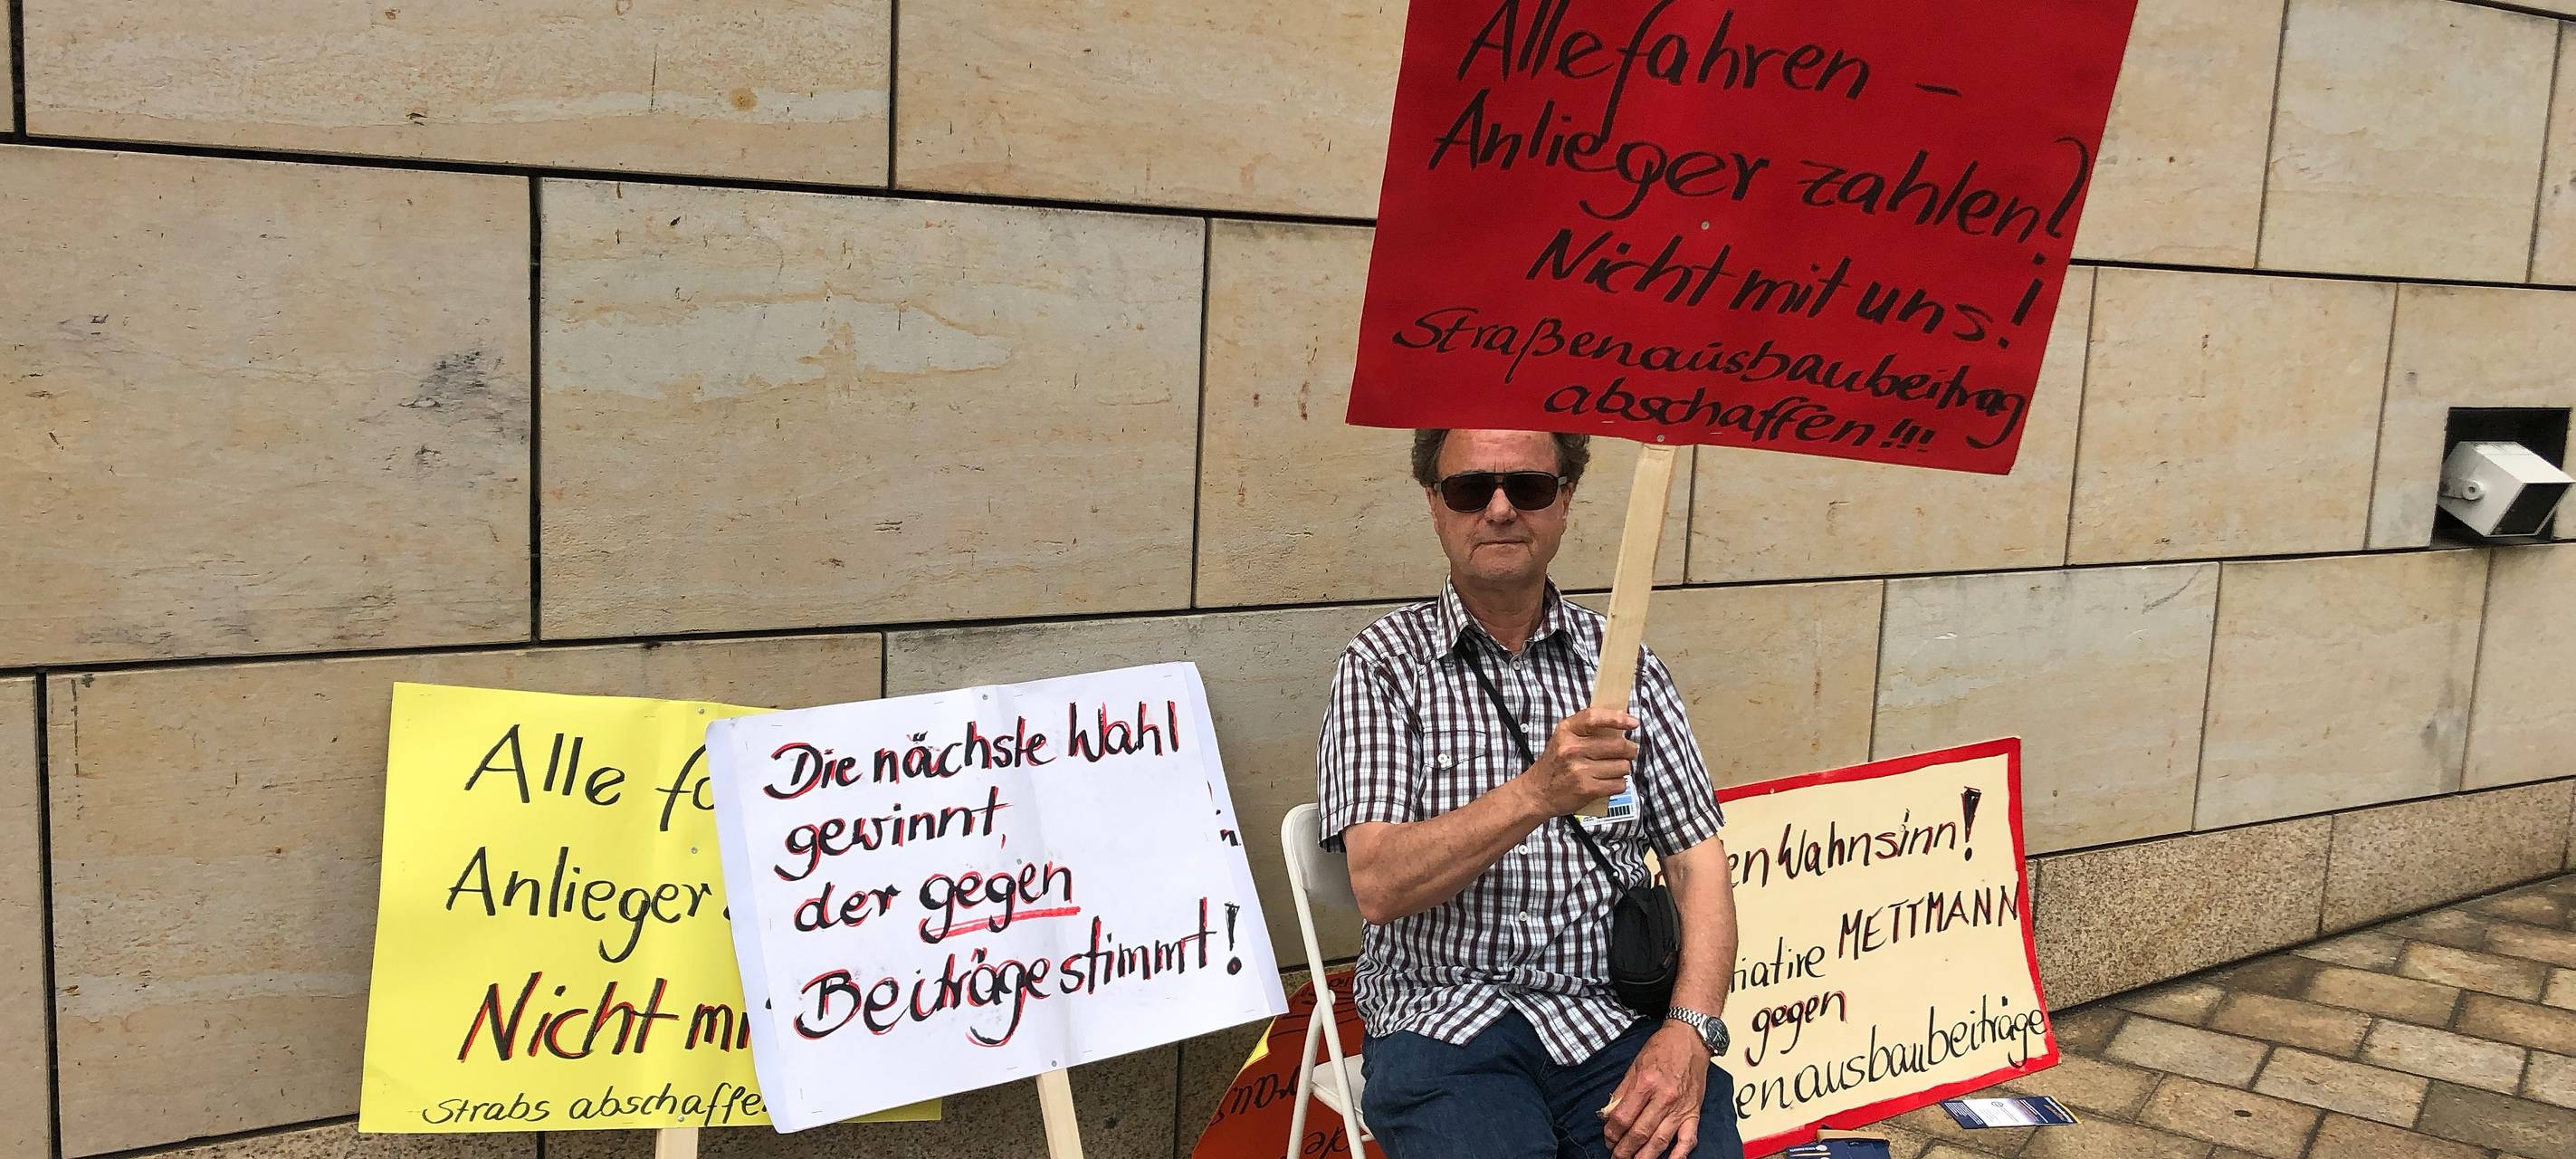 Alle fahren –
Anlieger zahlen?
Nicht mit uns!!
Straßenausbaubeitrag
abschaffen!!!
Alle
Anlieger
Nicht
Strabs abschaffe
Die nächste Wahl
gewinnt,
der gegen
Beiträge stimmt!
en Wahnsinn!
tiative METTMANN
gegen
enausbaubeiträge